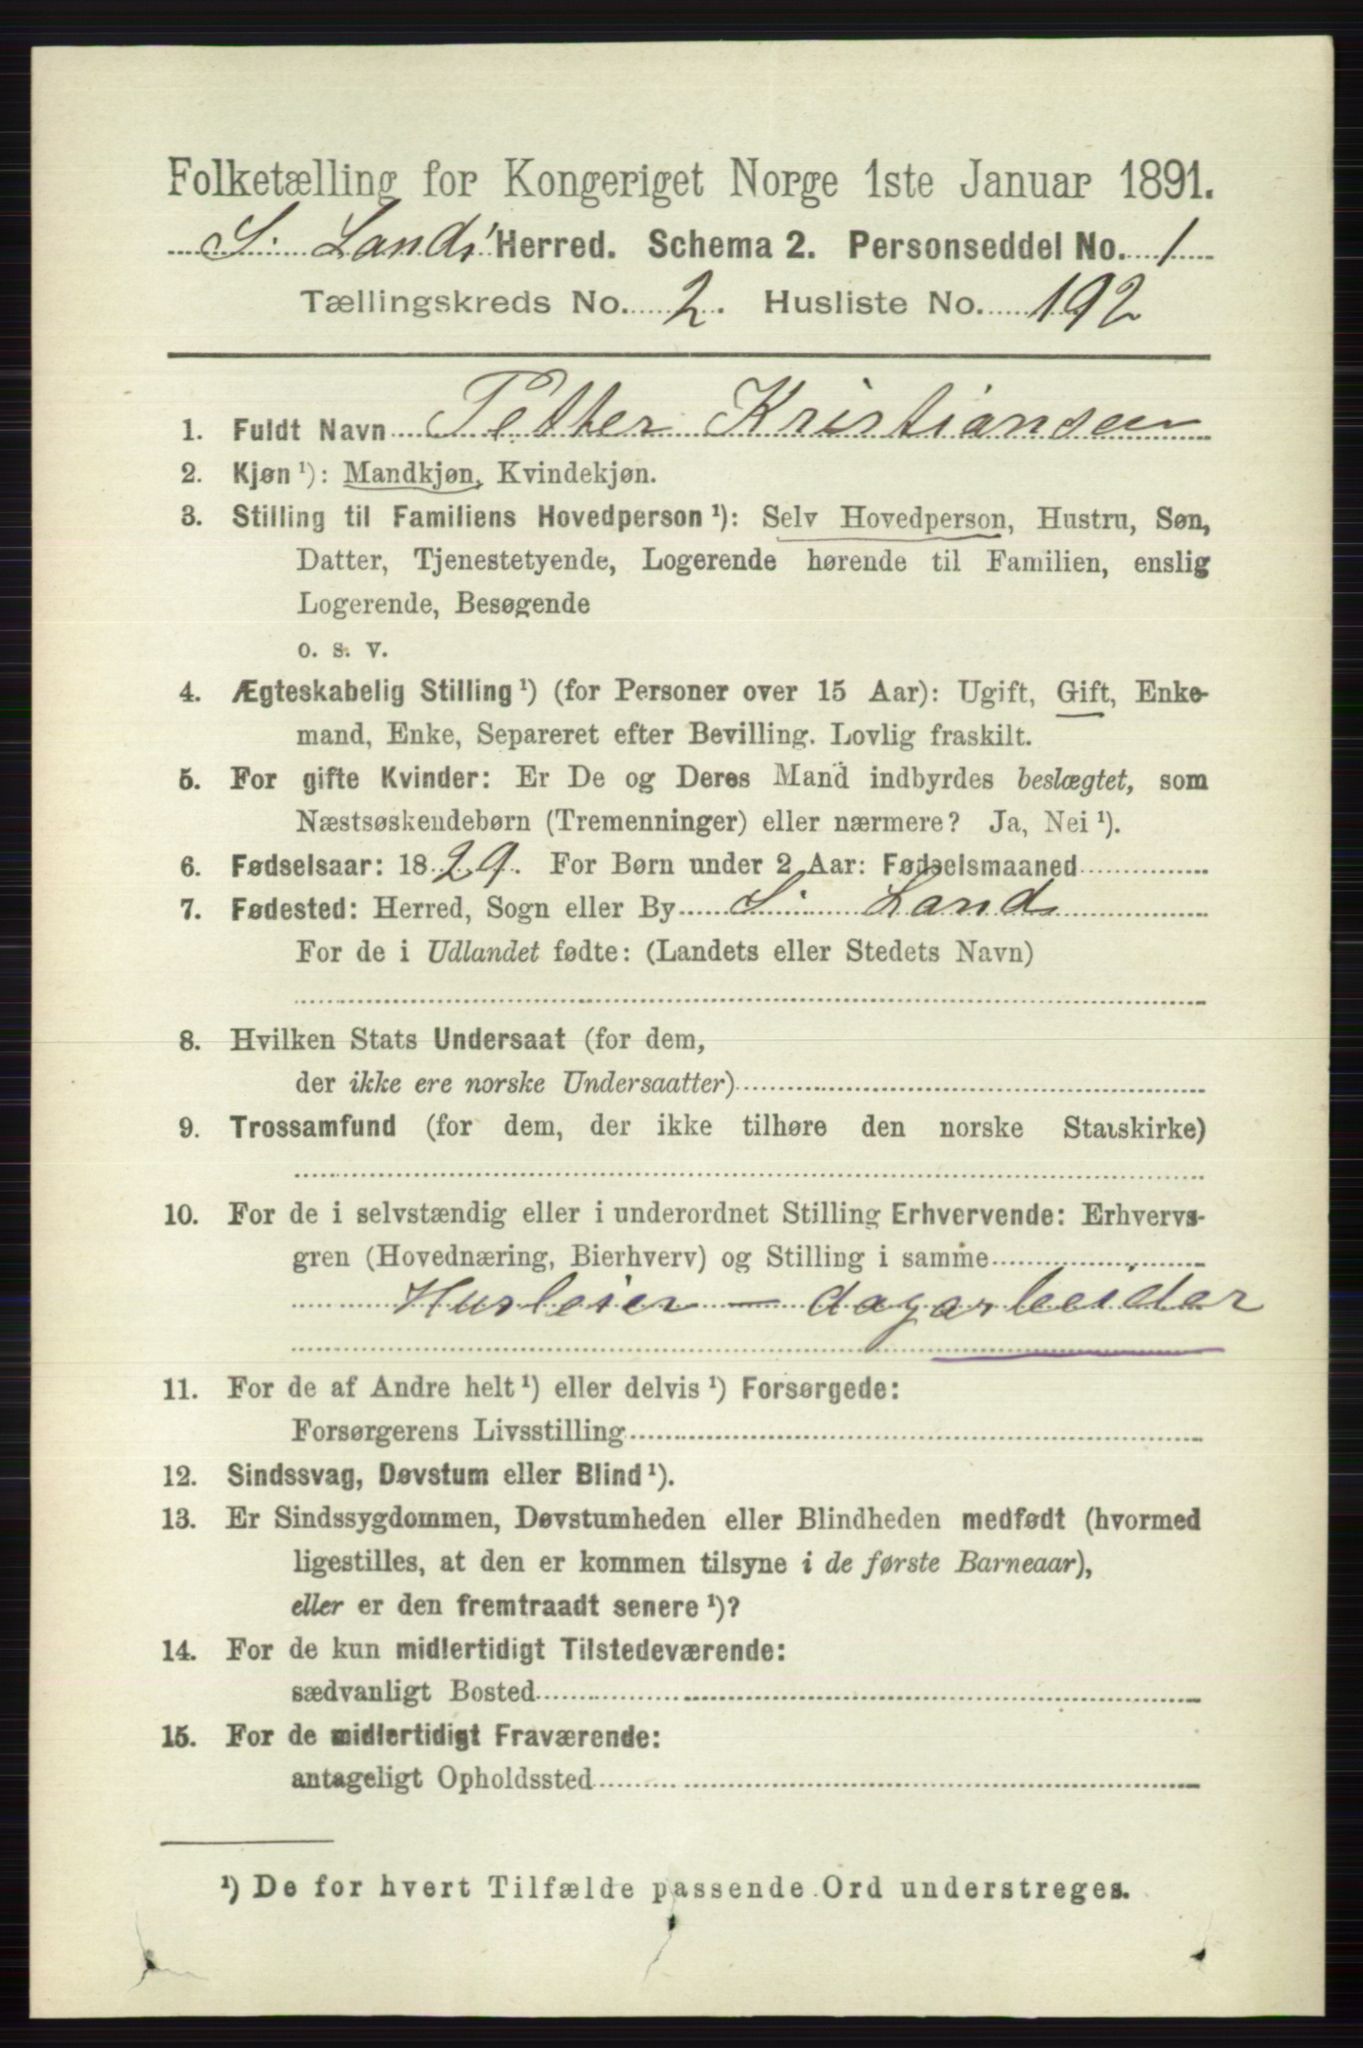 Folketælling for Kongeriget Norge 1ste Januar 1891.
S. Lands Herred. Schema 2. Personseddel No. 1
Tællingskreds No. 2. Husliste No. 192
1. Fuldt Navn Petter Kristiansen
2. Kjøn ¹): Mandkjøn, Kvindekjøn.
3. Stilling til Familiens Hovedperson ¹): Selv Hovedperson, Hustru, Søn,
Datter, Tjenestetyende, Logerende hørende til Familien, enslig
Logerende, Besøgende
o. s. v.
4. Ægteskabelig Stilling ¹) (for Personer over 15 Aar): Ugift, Gift, Enke-
mand, Enke, Separeret efter Bevilling. Lovlig fraskilt.
5. For gifte Kvinder: Er De og Deres Mand indbyrdes beslægtet, som
Næstsøskendebørn (Tremenninger) eller nærmere? Ja, Nei ¹).
6. Fødselsaar: 1829. For Børn under 2 Aar: Fødselsmaaned
7. Fødested: Herred, Sogn eller By S. Land
For de i Udlandet fødte: (Landets eller Stedets Navn)
8. Hvilken Stats Undersaat (for dem,
der ikke ere norske Undersaatter)
9. Trossamfund (for dem, der ikke tilhøre den norske Statskirke)
10. For de i selvstændig eller i underordnet Stilling Erhvervende: Erhvervs-
gren (Hovednæring, Bierhverv) og Stilling i samme
Husleier – dagarbeider
11. For de af Andre helt ¹) eller delvis ¹) Forsørgede:
Forsørgerens Livsstilling
12. Sindssvag, Døvstum eller Blind ¹).
13. Er Sindssygdommen, Døvstumheden eller Blindheden medfødt (hvormed
ligestilles, at den er kommen tilsyne i de første Barneaar),
eller er den fremtraadt senere ¹)?
14. For de kun midlertidigt Tilstedeværende:
sædvanligt Bosted
15. For de midlertidigt Fraværende:
antageligt Opholdssted
¹) De for hvert Tilfælde passende Ord understreges.